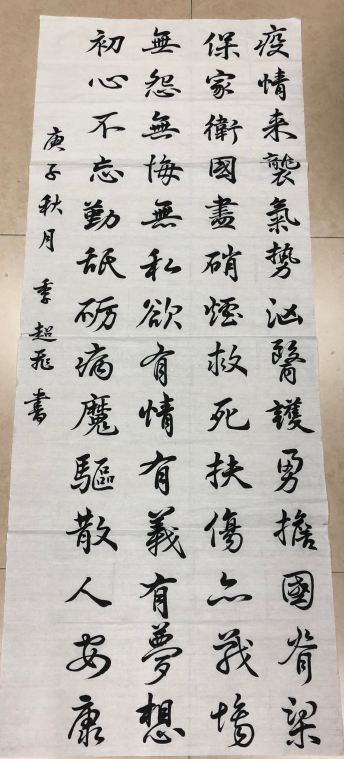 疫情来襲氣勢汹醫護勇擔國脊梁
保家衛國盡硝煙救死扶傷亦戰場
無怨無悔無私欲有情有義有夢想
初心不忘勤舐砺病魔驅散人安康
庚子秋月 季超飛書